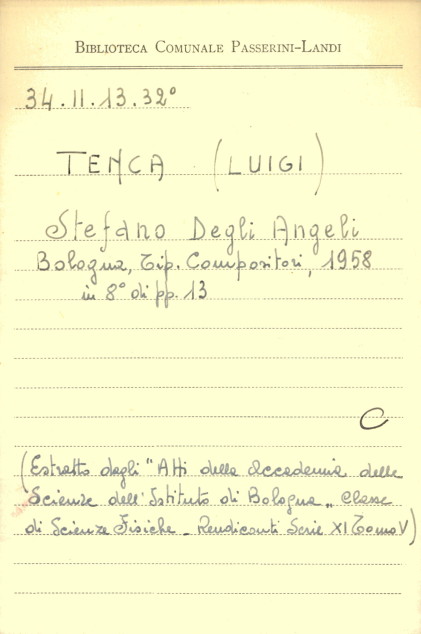 BIBLIOTECA COMUNALE PASSERINI-LANDI
34.II.13.32°
TENCA (LUIGI)
Stefano Degli Angeli
Bologna, Tip. Compositori, 1958
in 8° di pp. 13
C
(Estratto dagli "Atti della Accademia delle
Scienze dell'Istituto di Bologna„ Classe
di Scienze Fisiche - Rendiconti Serie XI Tomo V)